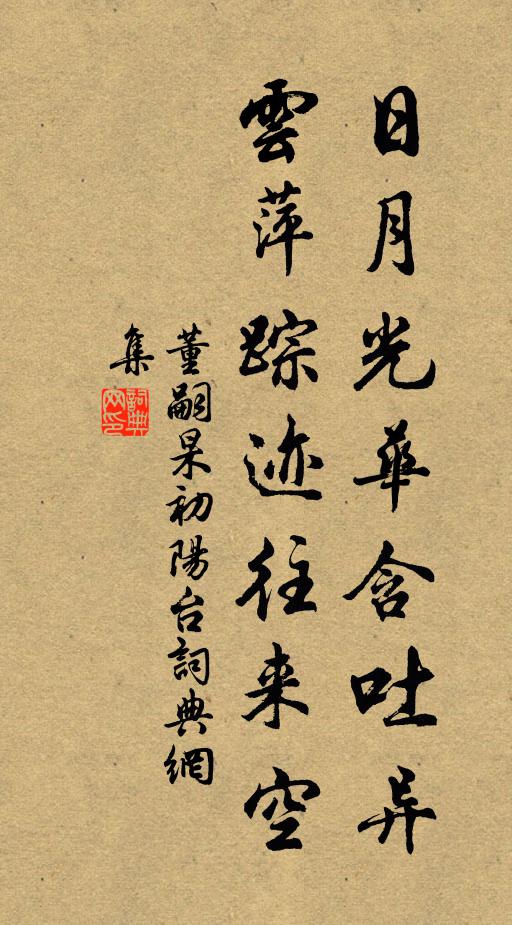 日月光華含吐异
雲萍踪迹往来空
董嗣杲初陽台詞典網
集
詞典
网印